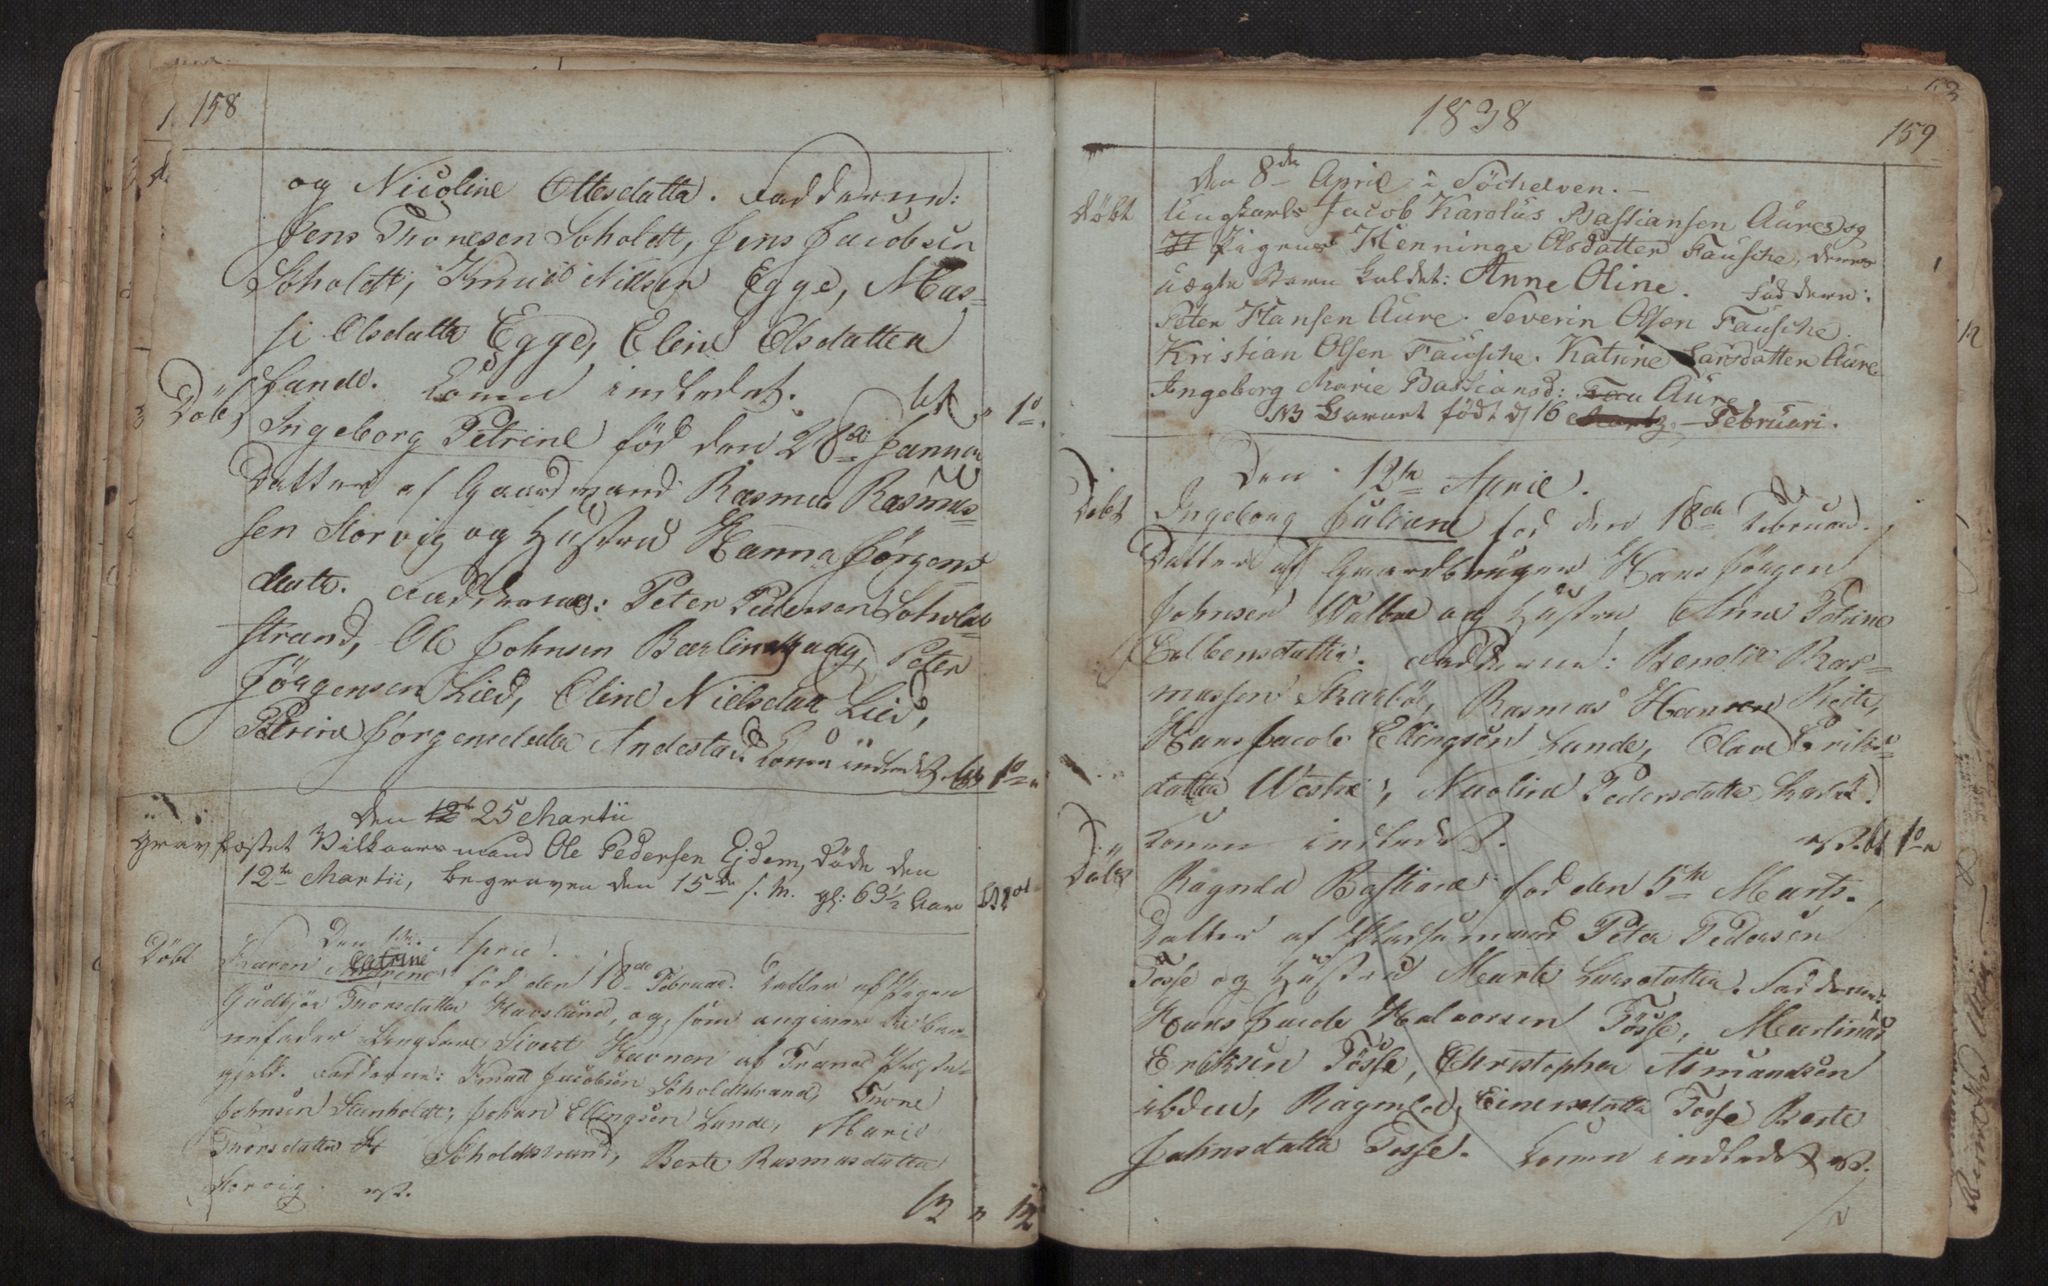 158
og Nicoline Ottesdatter. Fadderne:
Jens Tronesen Soholdt, Jens Jacobsen
Soholdt, Knud Nilsen Egge, Mas-
si Olsdatter Egge, Eline Olsdatter
Lande. Konen indledet.
Døbt
Ingeborg Petrine fød den 28de Januar
Datter af Gaardmand Rasmus Rasmus-
sen Storvig og Hustru Hanna Jørgens-
datter. Fadderne: Peter Pedersen Soholdt-
strand, Ole Johnsen Bærlinghaug, Peter
Jørgensen Lied, Eline Nielsdatter Lied,
Petrine Jørgensdatter Andestad. Konen indledt.
Den 12te 25 Martii
Gravfæstet Vilkaarsmand Ole Pedersen Ejdem, døde den
12te Martii, begraven den 15de s. M. gl: 63½ Aar
Døbt
Den 1ste April.
Karen Catrine Andrine fød den 18de Februar. Datter af Pigen
Gudbjør Tronsdatter Havslund, og, som angiven Bar-
nefader Ungkarl Sivert Havnen af Præste-
gjeld. Fadderne: Knud Jacobsen Soholdtstrand, Trone
Johnsen Stenholdt, Johan Ellingsen Lande, Marie
Tronsdatter St Soholdtstrand, Berte Rasmusdatter
Storvig.
1838
159
den 8de April i Söchelven.
Døbt
Ungkarls Jacob Karolus Bastiansen Aures og
H Pigens Henninge Olsdatter Fausche, deres
uægte Barn kaldet: Anne Oline. Faddere:
Peter Hansen Aure. Severin Olsen Fausche.
Kristian Olsen Fausche. Katrine Larsdatter Aure
Ingeborg Marie Bastiansd: Fau Aure
NB Barnet født d 16 Martz Februari.
Den 12te April.
Døbt
Ingeborg Juliane fød den 18de Februar.
Datter af Gaardbruger Hans Jørgen
Johnsen Walboe og Hustru Anne Petrine
Colbensdatter. Fadderne: Bendix Ras-
mussen Skarbø, Rasmus Hansen Reite,
Hans Jacob Ellingsen Lande, Olave Eriks-
datter Westre, Nicoline Pedersdatter
Konen indledt.
Døbt
Ragnild Bastiane fød den 5te Marts.
Datter af Pladsemand Peter Pedersen
Tosse og Hustrue Marte Larsdatter. Fadderne:
Hans Jacob Halvorsen Tosse, Martinus
Eriksen Tösse, Christopher Asmundsen
ibden, Ragnild Einersdatter Tosse Berte
Johnsdatter Tosse. Konen indledt